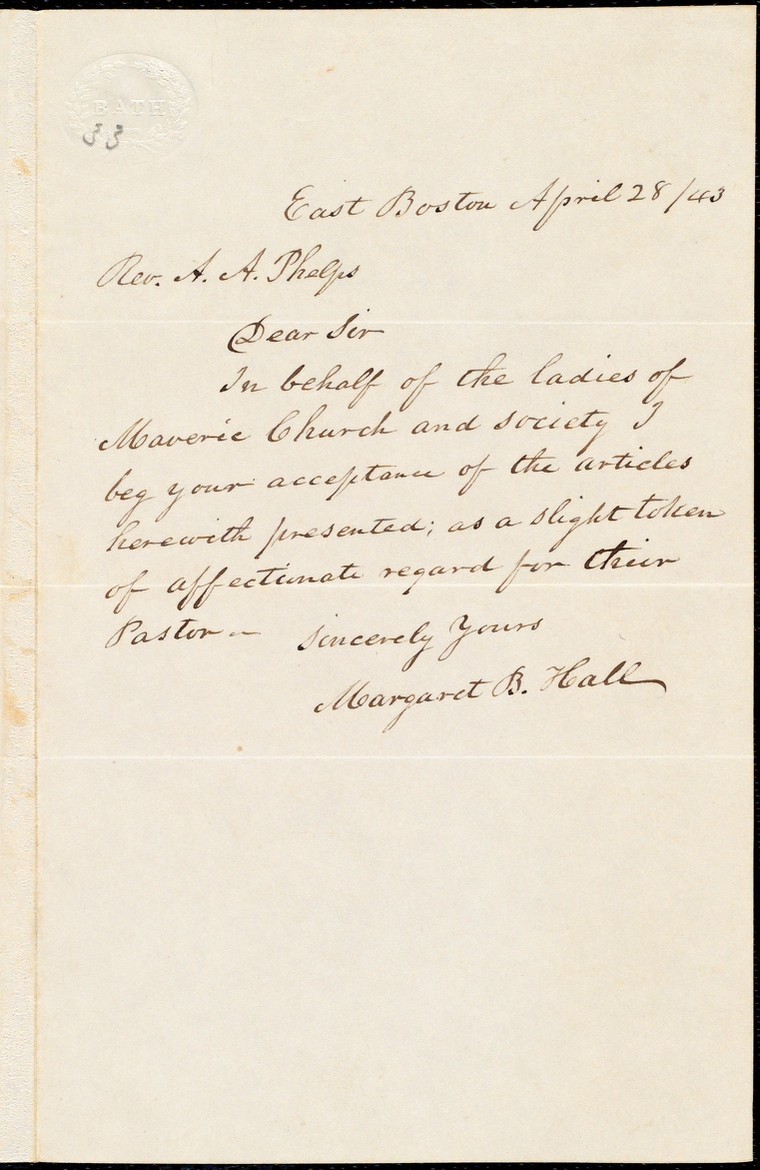 BATH
33
East Boston April 28/43
Rev. A. A. Phelps
Dear Sir
In behalf of the ladies of
Maveric Church and society I
beg your acceptance of the articles
herewith presented; as a slight token
of affectionate regard for their
Pastor — Sincerely Yours
Margaret B. Hall